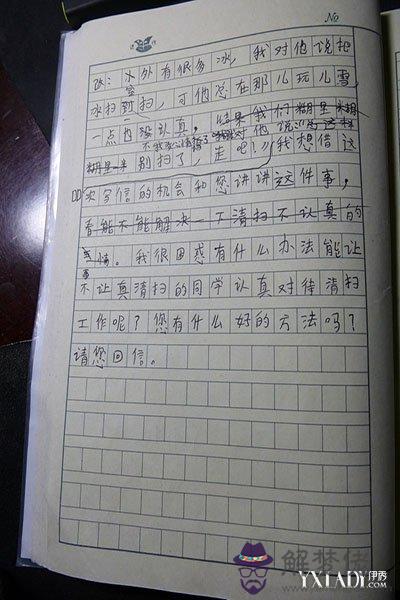 No
改：小外有很多水，我对他说把
水扫到扫，可他总在那儿玩儿雪，
一点也没认真，
别扫了，走吧！我想借这
次写信的机会和您讲讲这件事，
看能不能解决一下清扫不认真的
事情。我很困惑有什么办法能让
不让真清扫的同学认真对待清扫
工作呢？您有什么好的方法吗？
请您回信。
解梦佬
YXLADY.伊秀
.COM